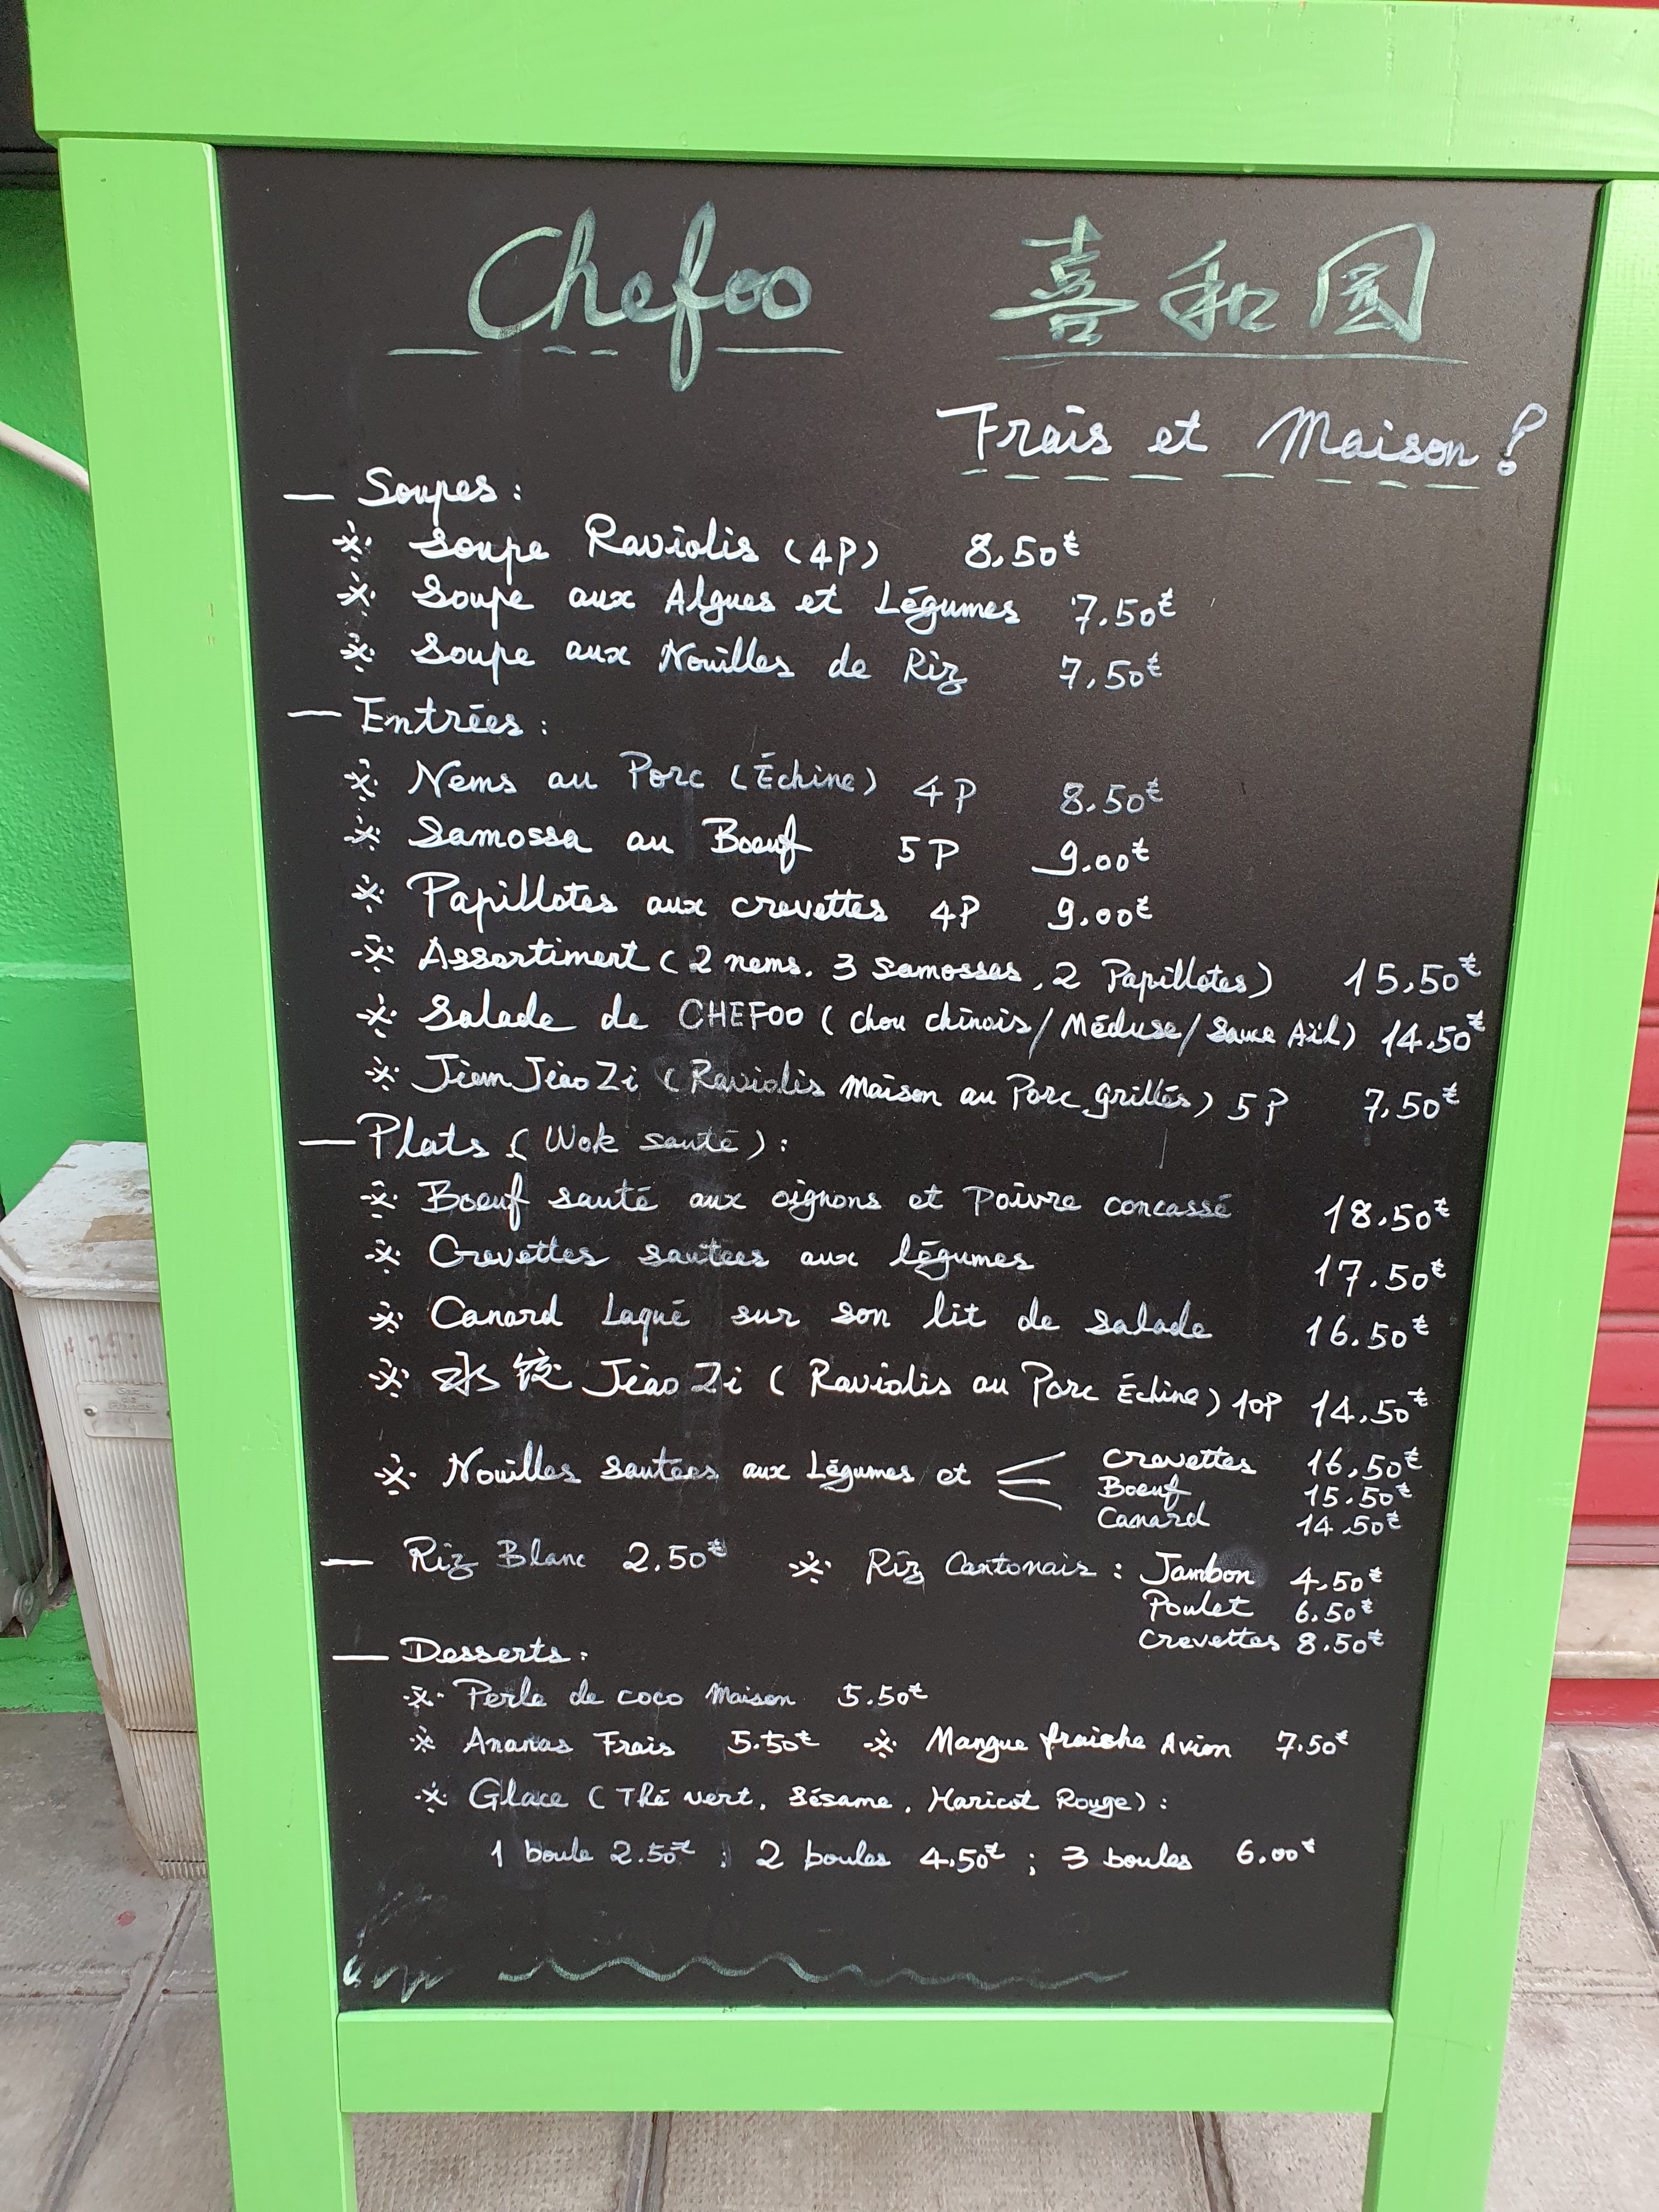 Chefoo 喜和园
Frais et Maison !
— Soupes :
※ Soupe Raviolis (4P) 8,50€
※ Soupe aux Algues et Légumes 7.50€
※ Soupe aux Nouilles de Riz 7,50€
— Entrées :
※ Nems au Porc (Échine) 4P 8.50€
※ Samossa au Boeuf 5P 9.00€
※ Papillotes aux crevettes 4P 9.00€
※ Assortiment (2 nems. 3 Samossas, 2 Papillotes) 15,50€
※ Salade de CHEFOO (chou chinois/Méduse/Sauce Aïl) 14.50€
※ Jian Jiao Zi (Raviolis Maison au Porc grillés) 5P 7,50€
— Plats (Wok sauté) :
※ Boeuf sauté aux oignons et Poivre concassé 18.50€
※ Crevettes sautées aux légumes 17.50€
※ Canard Laqué sur son lit de salade 16.50€
※ 水饺 Jiao Zi (Raviolis au Porc Échine) 10P 14,50€
※ Nouilles sautées aux Légumes et crevettes 16,50€
Boeuf 15.50€
Canard 14.50€
— Riz Blanc 2.50€ ※ Riz Cantonais : Jambon 4,50€
Poulet 6.50€
crevettes 8.50€
— Desserts :
※ Perle de coco Maison 5.50€
※ Ananas Frais 5.50€ ※ Mangue fraiche Avion 7.50€
※ Glace (Thé vert, Sésame, Haricot Rouge) :
1 boule 2.50€ ; 2 boules 4,50€ ; 3 boules 6.00€